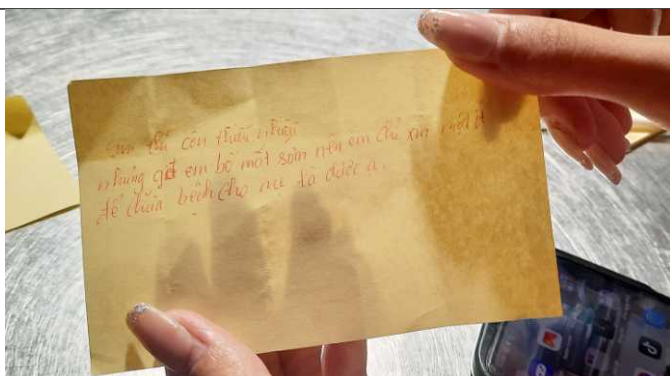 em thì còn thiếu nhiều
nhưng gđ em bố mất sớm nên em chỉ xin một ít
để chữa bệnh cho mẹ là được ạ.